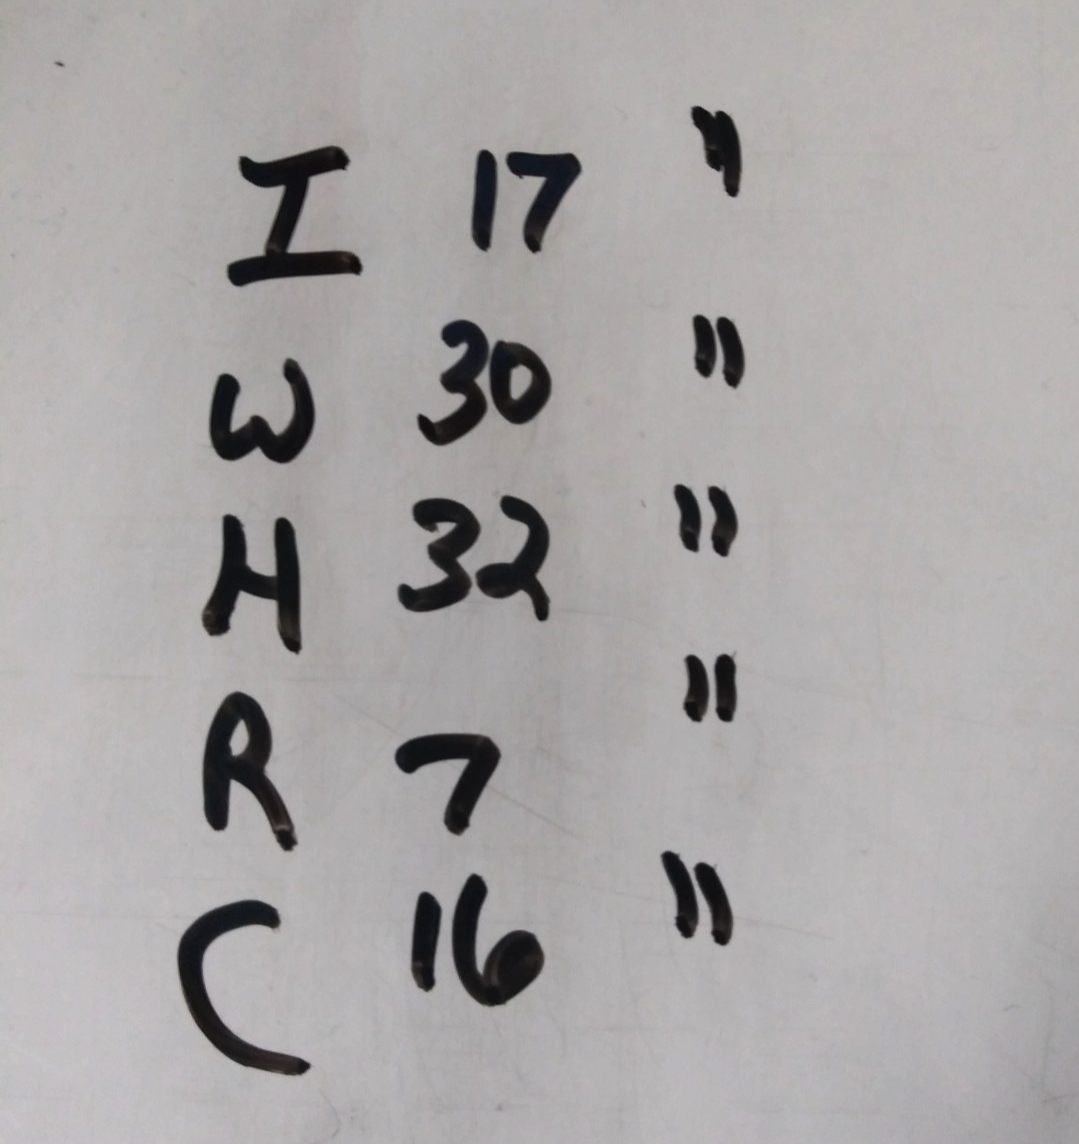 I 17 "
W 30 "
H 32 "
R 7 "
C 16 "